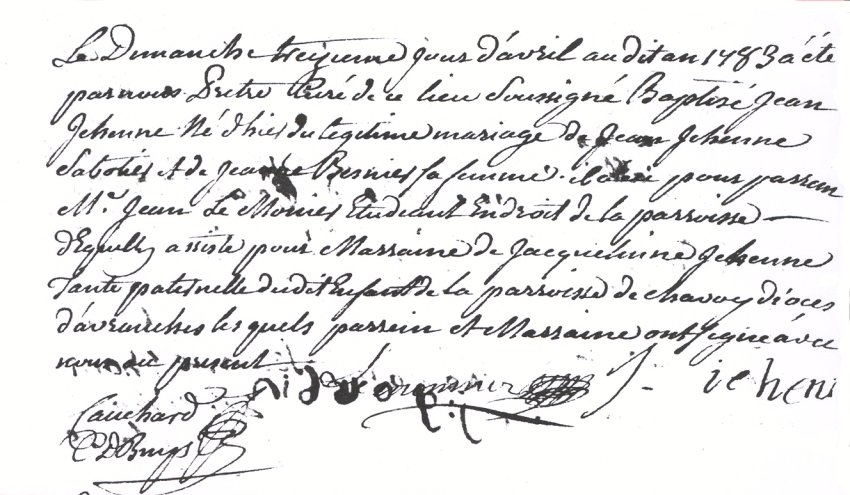 Le Dimanche treizieme jour d'avril au dit an 1783 a été
par nous Pretre Curé de ce lieu Soussigné Baptisé Jean
Jehenne Né d'hier du legitime mariage de Jean Jehenne
Sabotier et de Jeanne Besnier sa femme. il a eu pour parrain
Mr. Jean Le Monier Etudiant En droit de la parroisse
d'Equilly assisté pour Marraine de Jacquemine Jehenne
Tante paternelle du dit Enfant de la parroisse de chavoy dioces
d'avranches les quels parrein et Marraine ont signé avec
nous au present
Le monnier J. jehen
Cauchard